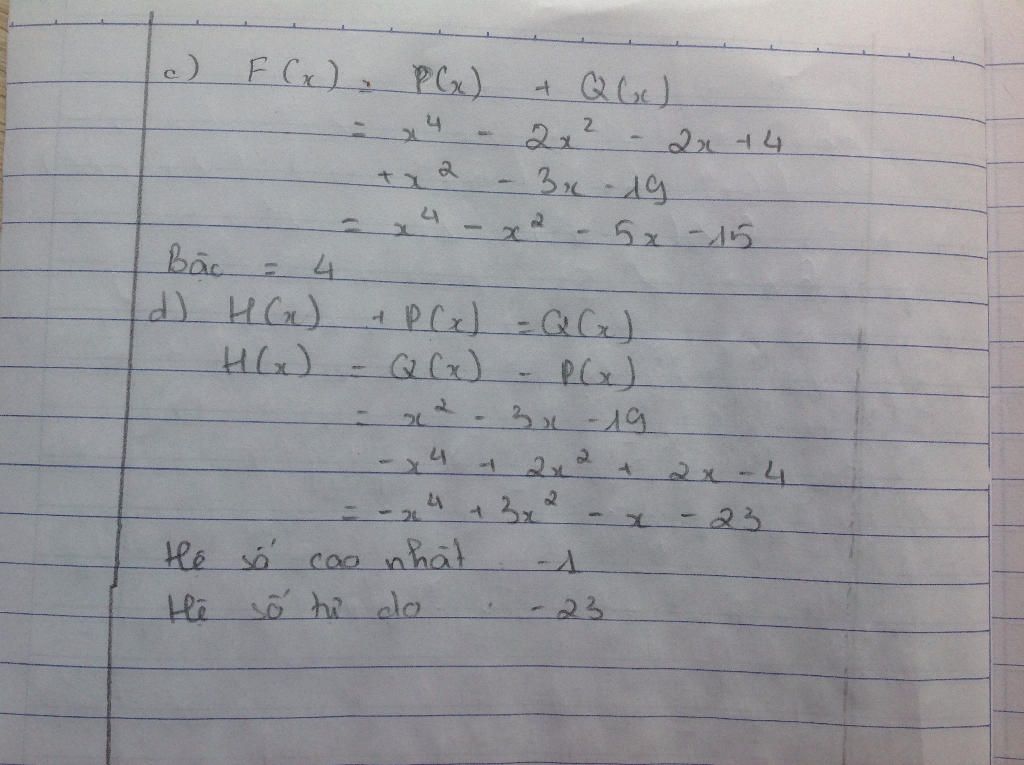 c) F(x) = P(x) + Q(x)
= x⁴ - 2x² - 2x + 4
+ x² - 3x - 19
= x⁴ - x² - 5x - 15
Bậc = 4
d) H(x) + P(x) = Q(x)
H(x) = Q(x) - P(x)
= x² - 3x - 19
- x⁴ + 2x² + 2x - 4
= -x⁴ + 3x² - x - 23
Hệ số cao nhất : -1
Hệ số tự do : -23